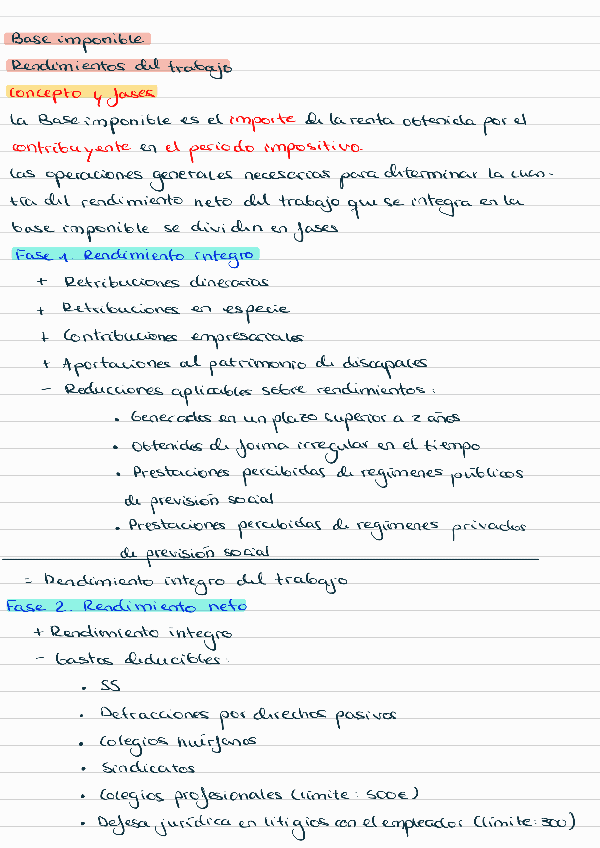 Base imponible
Rendimientos del trabajo
Concepto y fases
La Base imponible es el importe de la renta obtenida por el
contribuyente en el periodo impositivo.
Las operaciones generales necesarias para determinar la cuan-
tía del rendimiento neto del trabajo que se integra en la
base imponible se dividen en fases
Fase 1. Rendimiento integro
+ Retribuciones dinerarias
+ Retribuciones en especie
+ Contribuciones empresariales
+ Aportaciones al patrimonio de discapales
- Reducciones aplicables sobre rendimientos:
• Generados en un plazo superior a 2 años
• Obtenidos de forma irregular en el tiempo
• Prestaciones percibidas de regímenes públicos
de previsión social
• Prestaciones percibidas de regimenes privados
de previsión social
= Dendimiento integro del trabajo
Fase 2. Rendimiento neto
+ Rendimiento integro
- Gastos deducibles:
• SS
• Detracciones por derechos pasivos
• Colegios huérfanos
• Sindicatos
• Colegios profesionales (límite: 500€)
• Defesa jurídica en litigios con el empleador (límite: 300)